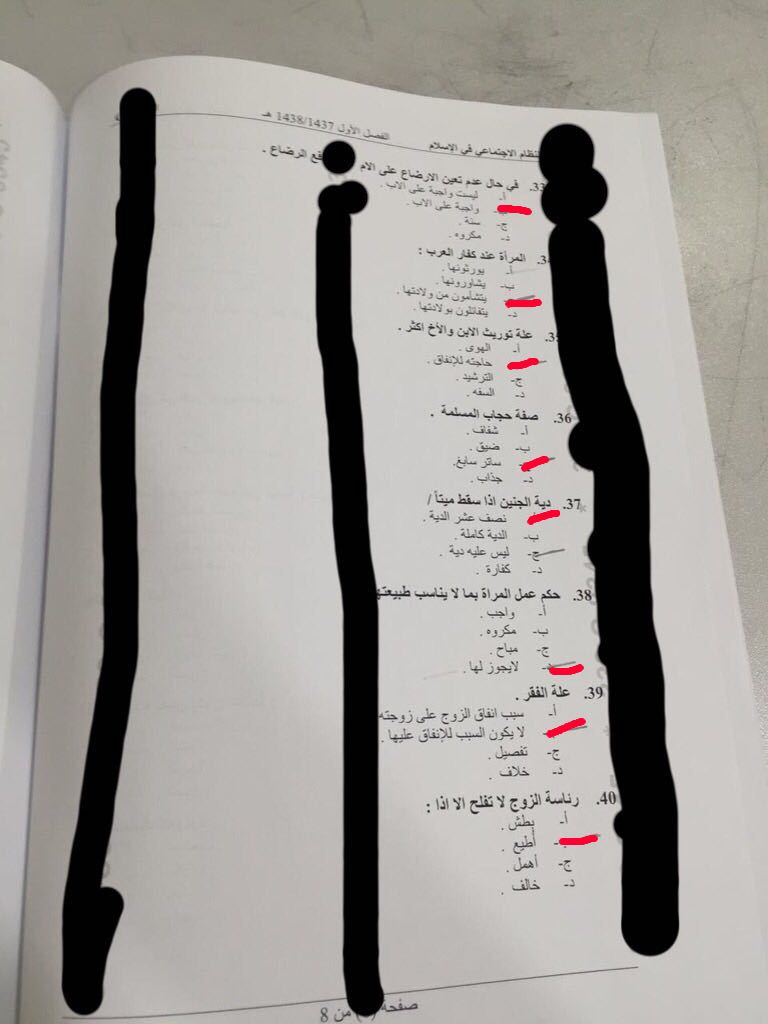 لنظام الاجتماعي في الإسلام
الفصل الأول 1438/1437 هـ
33. في حال عدم تعين الارضاع على الام فع الرضاع .
أ- ليست واجبة على الاب .
واجبة على الاب .
ج- سنة .
د- مكروه .
المرأة عند كفار العرب :
أ- يورثونها .
ب- يشاورونها .
يتشأمون من ولادتها .
د- يتفائلون بولادتها .
علة توريث الابن والأخ اكثر .
أ- الهوى .
حاجته للإنفاق .
ج- الترشيد .
د- السفه .
36. صفة حجاب المسلمة .
أ- شفاف .
ب- ضيق .
ساتر سابغ.
د- جذاب .
37. دية الجنين اذا سقط ميتاً /
نصف عشر الدية .
ب- الدية كاملة .
ج- ليس عليه دية .
د- كفارة .
38. حكم عمل المراة بما لا يناسب طبيعته
أ- واجب .
ب- مكروه .
ج- مباح .
لايجوز لها .
39. علة الفقر .
أ- سبب انفاق الزوج على زوجته
لا يكون السبب للإنفاق عليها .
ج- تفصيل .
د- خلاف .
40. رئاسة الزوج لا تفلح الا اذا :
أ- بطش .
أطيع .
ج- أهمل .
د- خالف .
صفحة من 8